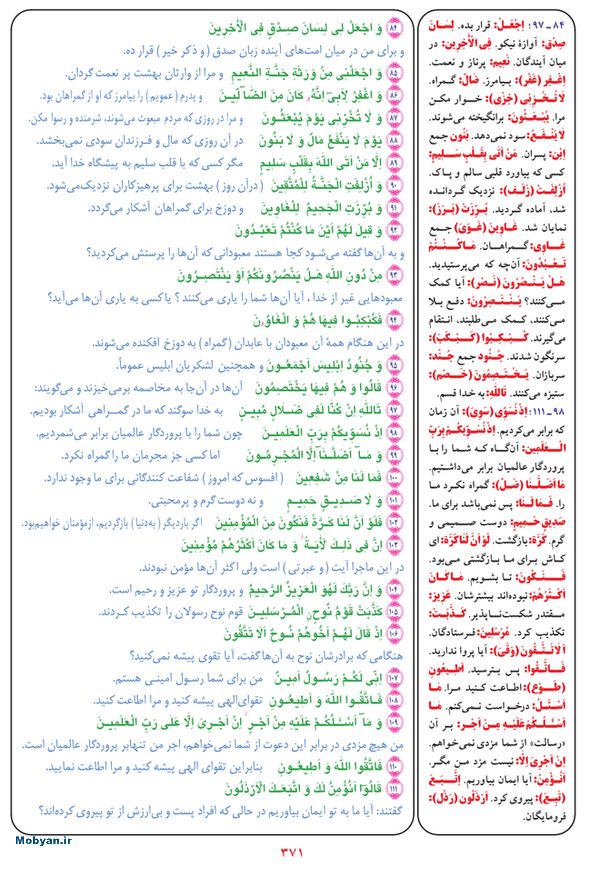 ۸۴ وَ اجْعَلْ لِی لِسَانَ صِدْقٍ فِی الْأَخِرِینَ
و برای من در میان امت‌های آینده زبان صدق (و ذکر خیر) قرار ده.
۸۵ وَ اجْعَلْنِی مِنْ وَرَثَةِ جَنَّةِ النَّعِیمِ و مرا از وارثان بهشت پر نعمت گردان.
۸۶ وَ اغْفِرْ لِأَبِی إِنَّهُ کَانَ مِنَ الضَّالِّینَ و پدرم (عمویم) را بیامرز که او از گمراهان بود.
۸۷ وَ لَا تُخْزِنِی یَوْمَ یُبْعَثُونَ و مرا در روزی که مردم مبعوث می‌شوند، شرمنده و رسوا مکن.
۸۸ یَوْمَ لَا یَنْفَعُ مَالٌ وَ لَا بَنُونَ در آن روزی که مال و فرزندان سودی نمی‌بخشد.
۸۹ إِلَّا مَنْ أَتَی اللَّهَ بِقَلْبٍ سَلِیمٍ مگر کسی که با قلب سلیم به پیشگاه خدا آید.
۹۰ وَ أُزْلِفَتِ الْجَنَّةُ لِلْمُتَّقِینَ (درآن روز) بهشت برای پرهیزکاران نزدیک‌می‌شود.
۹۱ وَ بُرِّزَتِ الْجَحِیمُ لِلْغَاوِینَ و دوزخ برای گمراهان آشکار می‌گردد.
۹۲ وَ قِیلَ لَهُمْ أَیْنَ مَا کُنْتُمْ تَعْبُدُونَ
و به آن‌ها گفته می‌شود کجا هستند معبودانی که آن‌ها را پرستش می‌کردید؟
۹۳ مِنْ دُونِ اللَّهِ هَلْ یَنْصُرُونَکُمْ أَوْ یَنْتَصِرُونَ
معبودهایی غیر از خدا، آیا آن‌ها شما را یاری می‌کنند؟ یا کسی به یاری آن‌ها می‌آید؟
۹۴ فَکُبْکِبُوا فِیهَا هُمْ وَ الْغَاوُنَ
در این هنگام همهٔ آن معبودان با عابدان (گمراه) به دوزخ افکنده می‌شوند.
۹۵ وَ جُنُودُ إِبْلِیسَ أَجْمَعُونَ و همچنین لشکریان ابلیس عموماً.
۹۶ قَالُوا وَ هُمْ فِیهَا یَخْتَصِمُونَ آن‌ها در آن‌جا به مخاصمه برمی‌خیزند و می‌گویند:
۹۷ تَاللَّهِ إِنْ کُنَّا لَفِی ضَلَالٍ مُبِینٍ به خدا سوگند که ما در گمراهی آشکار بودیم.
۹۸ إِذْ نُسَوِّیکُمْ بِرَبِّ الْعَلَمِینَ چون شما را با پروردگار عالمیان برابر می‌شمردیم.
۹۹ وَ مَا أَضَلَّنَا إِلَّا الْمُجْرِمُونَ اما کسی جز مجرمان ما را گمراه نکرد.
۱۰۰ فَمَا لَنَا مِنْ شَفِعِینَ (افسوس که امروز) شفاعت کنندگانی برای ما وجود ندارد.
۱۰۱ وَ لَا صَدِیقٍ حَمِیمٍ و نه دوست گرم و پرمحبتی.
۱۰۲ فَلَوْ أَنَّ لَنَا کَرَّةً فَنَکُونَ مِنَ الْمُؤْمِنِینَ اگر باردیگر (به‌دنیا) بازگردیم، ازمؤمنان خواهیم‌بود.
۱۰۳ إِنَّ فِی ذَلِکَ لَأَیَةً وَ مَا کَانَ أَکْثَرُهُمْ مُؤْمِنِینَ
در این ماجرا آیت (و عبرتی) است ولی اکثر آن‌ها مؤمن نبودند.
۱۰۴ وَ إِنَّ رَبَّکَ لَهُوَ الْعَزِیزُ الرَّحِیمُ و پروردگار تو عزیز و رحیم است.
۱۰۵ کَذَّبَتْ قَوْمُ نُوحٍ الْمُرْسَلِینَ قوم نوح رسولان را تکذیب کردند.
۱۰۶ إِذْ قَالَ لَهُمْ أَخُوهُمْ نُوحٌ أَلَا تَتَّقُونَ
هنگامی که برادرشان نوح به آن‌ها گفت، آیا تقوی پیشه نمی‌کنید؟
۱۰۷ إِنِّی لَکُمْ رَسُولٌ أَمِینٌ من برای شما رسول امینی هستم.
۱۰۸ فَاتَّقُوا اللَّهَ وَ أَطِیعُونِ تقوای‌الهی پیشه کنید و مرا اطاعت کنید.
۱۰۹ وَ مَا أَسْئَلُکُمْ عَلَیْهِ مِنْ أَجْرٍ إِنْ أَجْرِیَ إِلَّا عَلَی رَبِّ الْعَلَمِینَ
من هیچ مزدی در برابر این دعوت از شما نمی‌خواهم، اجر من تنهابر پروردگار عالمیان است.
۱۱۰ فَاتَّقُوا اللَّهَ وَ أَطِیعُونِ بنابراین تقوای الهی پیشه کنید و مرا اطاعت نمایید.
۱۱۱ قَالُوا أَنُؤْمِنُ لَکَ وَ اتَّبَعَکَ الْأَرْذَلُونَ
گفتند: آیا ما به تو ایمان بیاوریم در حالی که افراد پست و بی‌ارزش از تو پیروی کرده‌اند؟
۸۴ـ۹۷: اِجْعَلْ: قرار بده. لِسَانَ
صِدْقٍ: آوازهٔ نیکو. فِی الْأَخِرِینَ: در
میان آیندگان. نَعِیمِ: پرناز و نعمت.
اِغْفِرْ (غَفَرَ): بیامرز. ضَالّ: گمراه.
لَا تُخْزِنِی (خِزْی): خوار مکن
مرا. یُبْعَثُونَ: برانگیخته می‌شوند.
لَا یَنْفَعُ: سود نمی‌دهد. بَنُونَ جمع
اِبْن: پسران. مَنْ أَتَی بِقَلْبٍ سَلِیمٍ:
کسی که بیاورد قلبی سالم و پاک.
أُزْلِفَتْ (زَلَفَ): نزدیک گردانده
شد، آماده گردید. بُرِّزَتْ (بَرَزَ):
نمایان شد. غَاوِینَ (غَوَیَ) جمع
غَاوِی: گمراهان. مَا کُنْتُمْ
تَعْبُدُونَ: آن‌چه که می‌پرستیدید.
هَلْ یَنْصُرُونَ (نَصَرَ): آیا کمک
می‌کنند؟ یَنْتَصِرُونَ: دفع بلا
می‌کنند، کمک می‌طلبند، انتقام
می‌گیرند. کُبْکِبُوا (کَبْکَبَ):
سرنگون شدند. جُنُود جمع جُنْد:
سربازان. یَخْتَصِمُونَ (خَصَمَ):
ستیزه می‌کنند. تَاللَّهِ: به خدا قسم.
۹۸ـ۱۱۱: إِذْ نُسَوِّی (سَوِیَ): آن زمان
که برابر می‌کردیم. إِذْ نُسَوِّیکُمْ بِرَبِّ
الْعَلَمِینَ: آن‌گاه که شما را با
پروردگار عالمیان برابر می‌داشتیم.
مَا أَضَلَّنَا (ضَلَّ): گمراه نکرد ما
را. فَمَا لَنَا: پس نمی‌باشد برای ما.
صَدِیقٍ حَمِیمٍ: دوست صمیمی و
گرم. کَرَّة: بازگشت. لَوْ أَنَّ لَنَا کَرَّةً: ای
کاش برای ما بازگشتی می‌بود.
فَنَکُونَ: تا بشویم. مَا کَانَ
أَکْثَرُهُمْ: نبوده‌اند بیشترشان. عَزِیز:
مقتدر شکست‌ناپذیر. کَذَّبَتْ:
تکذیب کرد. مُرْسَلِینَ: فرستادگان.
أَلَا تَتَّقُونَ (وَقَیَ): آیا پروا ندارید.
فَاتَّقُوا: پس بترسید. أَطِیعُونِ
(طَوَعَ): اطاعت کنید مرا. مَا
أَسْئَلُ: درخواست نمی‌کنم. مَا
أَسْئَلُکُمْ عَلَیْهِ مِنْ أَجْرٍ: بر آن
«رسالت» از شما مزدی نمی‌خواهم.
إِنْ أَجْرِیَ إِلَّا: نیست مزد من مگر.
أَنُؤْمِنُ: آیا ایمان بیاوریم. اِتَّبَعَ
(تَبِعَ): پیروی کرد. أَرْذَلُون (رَذَلَ):
فرومایگان.
Mobyan.ir
۳۷۱